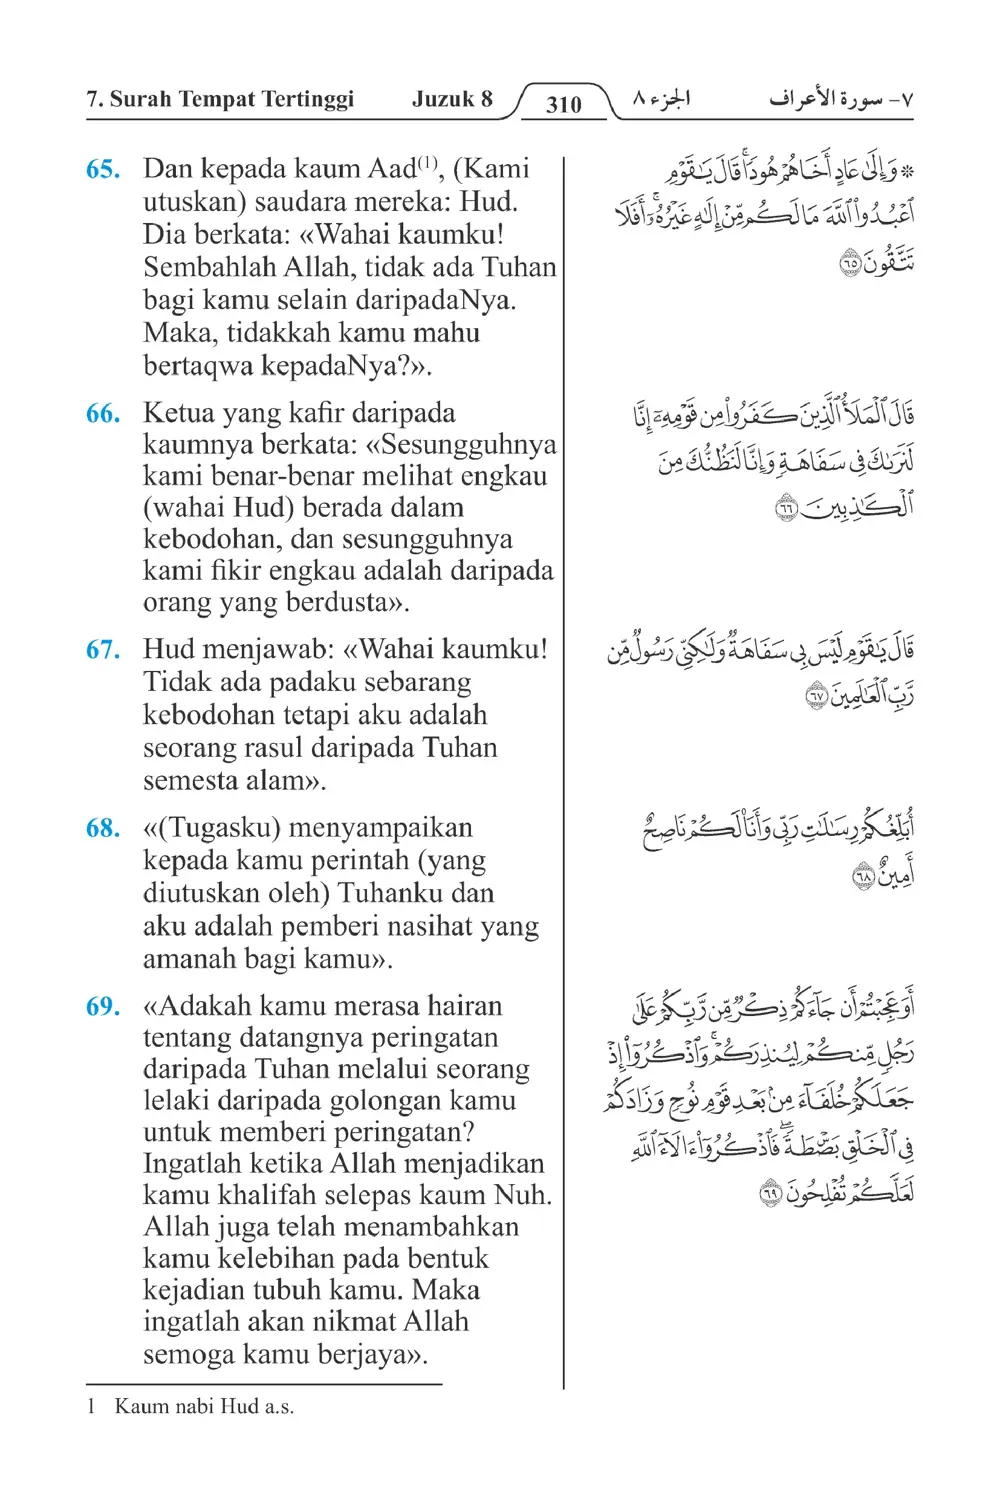 7. Surah Tempat Tertinggi Juzuk 8 310 الجزء ٨ ٧- سورة الأعراف
65. Dan kepada kaum Aad(1), (Kami
utuskan) saudara mereka: Hud.
Dia berkata: «Wahai kaumku!
Sembahlah Allah, tidak ada Tuhan
bagi kamu selain daripadaNya.
Maka, tidakkah kamu mahu
bertaqwa kepadaNya?».
66. Ketua yang kafir daripada
kaumnya berkata: «Sesungguhnya
kami benar-benar melihat engkau
(wahai Hud) berada dalam
kebodohan, dan sesungguhnya
kami fikir engkau adalah daripada
orang yang berdusta».
67. Hud menjawab: «Wahai kaumku!
Tidak ada padaku sebarang
kebodohan tetapi aku adalah
seorang rasul daripada Tuhan
semesta alam».
68. «(Tugasku) menyampaikan
kepada kamu perintah (yang
diutuskan oleh) Tuhanku dan
aku adalah pemberi nasihat yang
amanah bagi kamu».
69. «Adakah kamu merasa hairan
tentang datangnya peringatan
daripada Tuhan melalui seorang
lelaki daripada golongan kamu
untuk memberi peringatan?
Ingatlah ketika Allah menjadikan
kamu khalifah selepas kaum Nuh.
Allah juga telah menambahkan
kamu kelebihan pada bentuk
kejadian tubuh kamu. Maka
ingatlah akan nikmat Allah
semoga kamu berjaya».
۞ وَإِلَىٰ عَادٍ أَخَاهُمْ هُودًاۚ قَالَ يَـٰقَوْمِ
ٱعْبُدُوا۟ ٱللَّهَ مَا لَكُم مِّنْ إِلَـٰهٍ غَيْرُهُۥٓۚ أَفَلَا
تَتَّقُونَ ٦٥
قَالَ ٱلْمَلَأُ ٱلَّذِينَ كَفَرُوا۟ مِن قَوْمِهِۦٓ إِنَّا
لَنَرَىٰكَ فِى سَفَاهَةٍ وَإِنَّا لَنَظُنُّكَ مِنَ
ٱلْكَـٰذِبِينَ ٦٦
قَالَ يَـٰقَوْمِ لَيْسَ بِى سَفَاهَةٌ وَلَـٰكِنِّى رَسُولٌ مِّن
رَّبِّ ٱلْعَـٰلَمِينَ ٦٧
أُبَلِّغُكُمْ رِسَـٰلَـٰتِ رَبِّى وَأَنَا۠ لَكُمْ نَاصِحٌ
أَمِينٌ ٦٨
أَوَعَجِبْتُمْ أَن جَآءَكُمْ ذِكْرٌ مِّن رَّبِّكُمْ عَلَىٰ
رَجُلٍ مِّنكُمْ لِيُنذِرَكُمْۚ وَٱذْكُرُوٓا۟ إِذْ
جَعَلَكُمْ خُلَفَآءَ مِنۢ بَعْدِ قَوْمِ نُوحٍ وَزَادَكُمْ
فِى ٱلْخَلْقِ بَصْۜطَةًۖ فَٱذْكُرُوٓا۟ ءَالَآءَ ٱللَّهِ
لَعَلَّكُمْ تُفْلِحُونَ ٦٩
1 Kaum nabi Hud a.s.